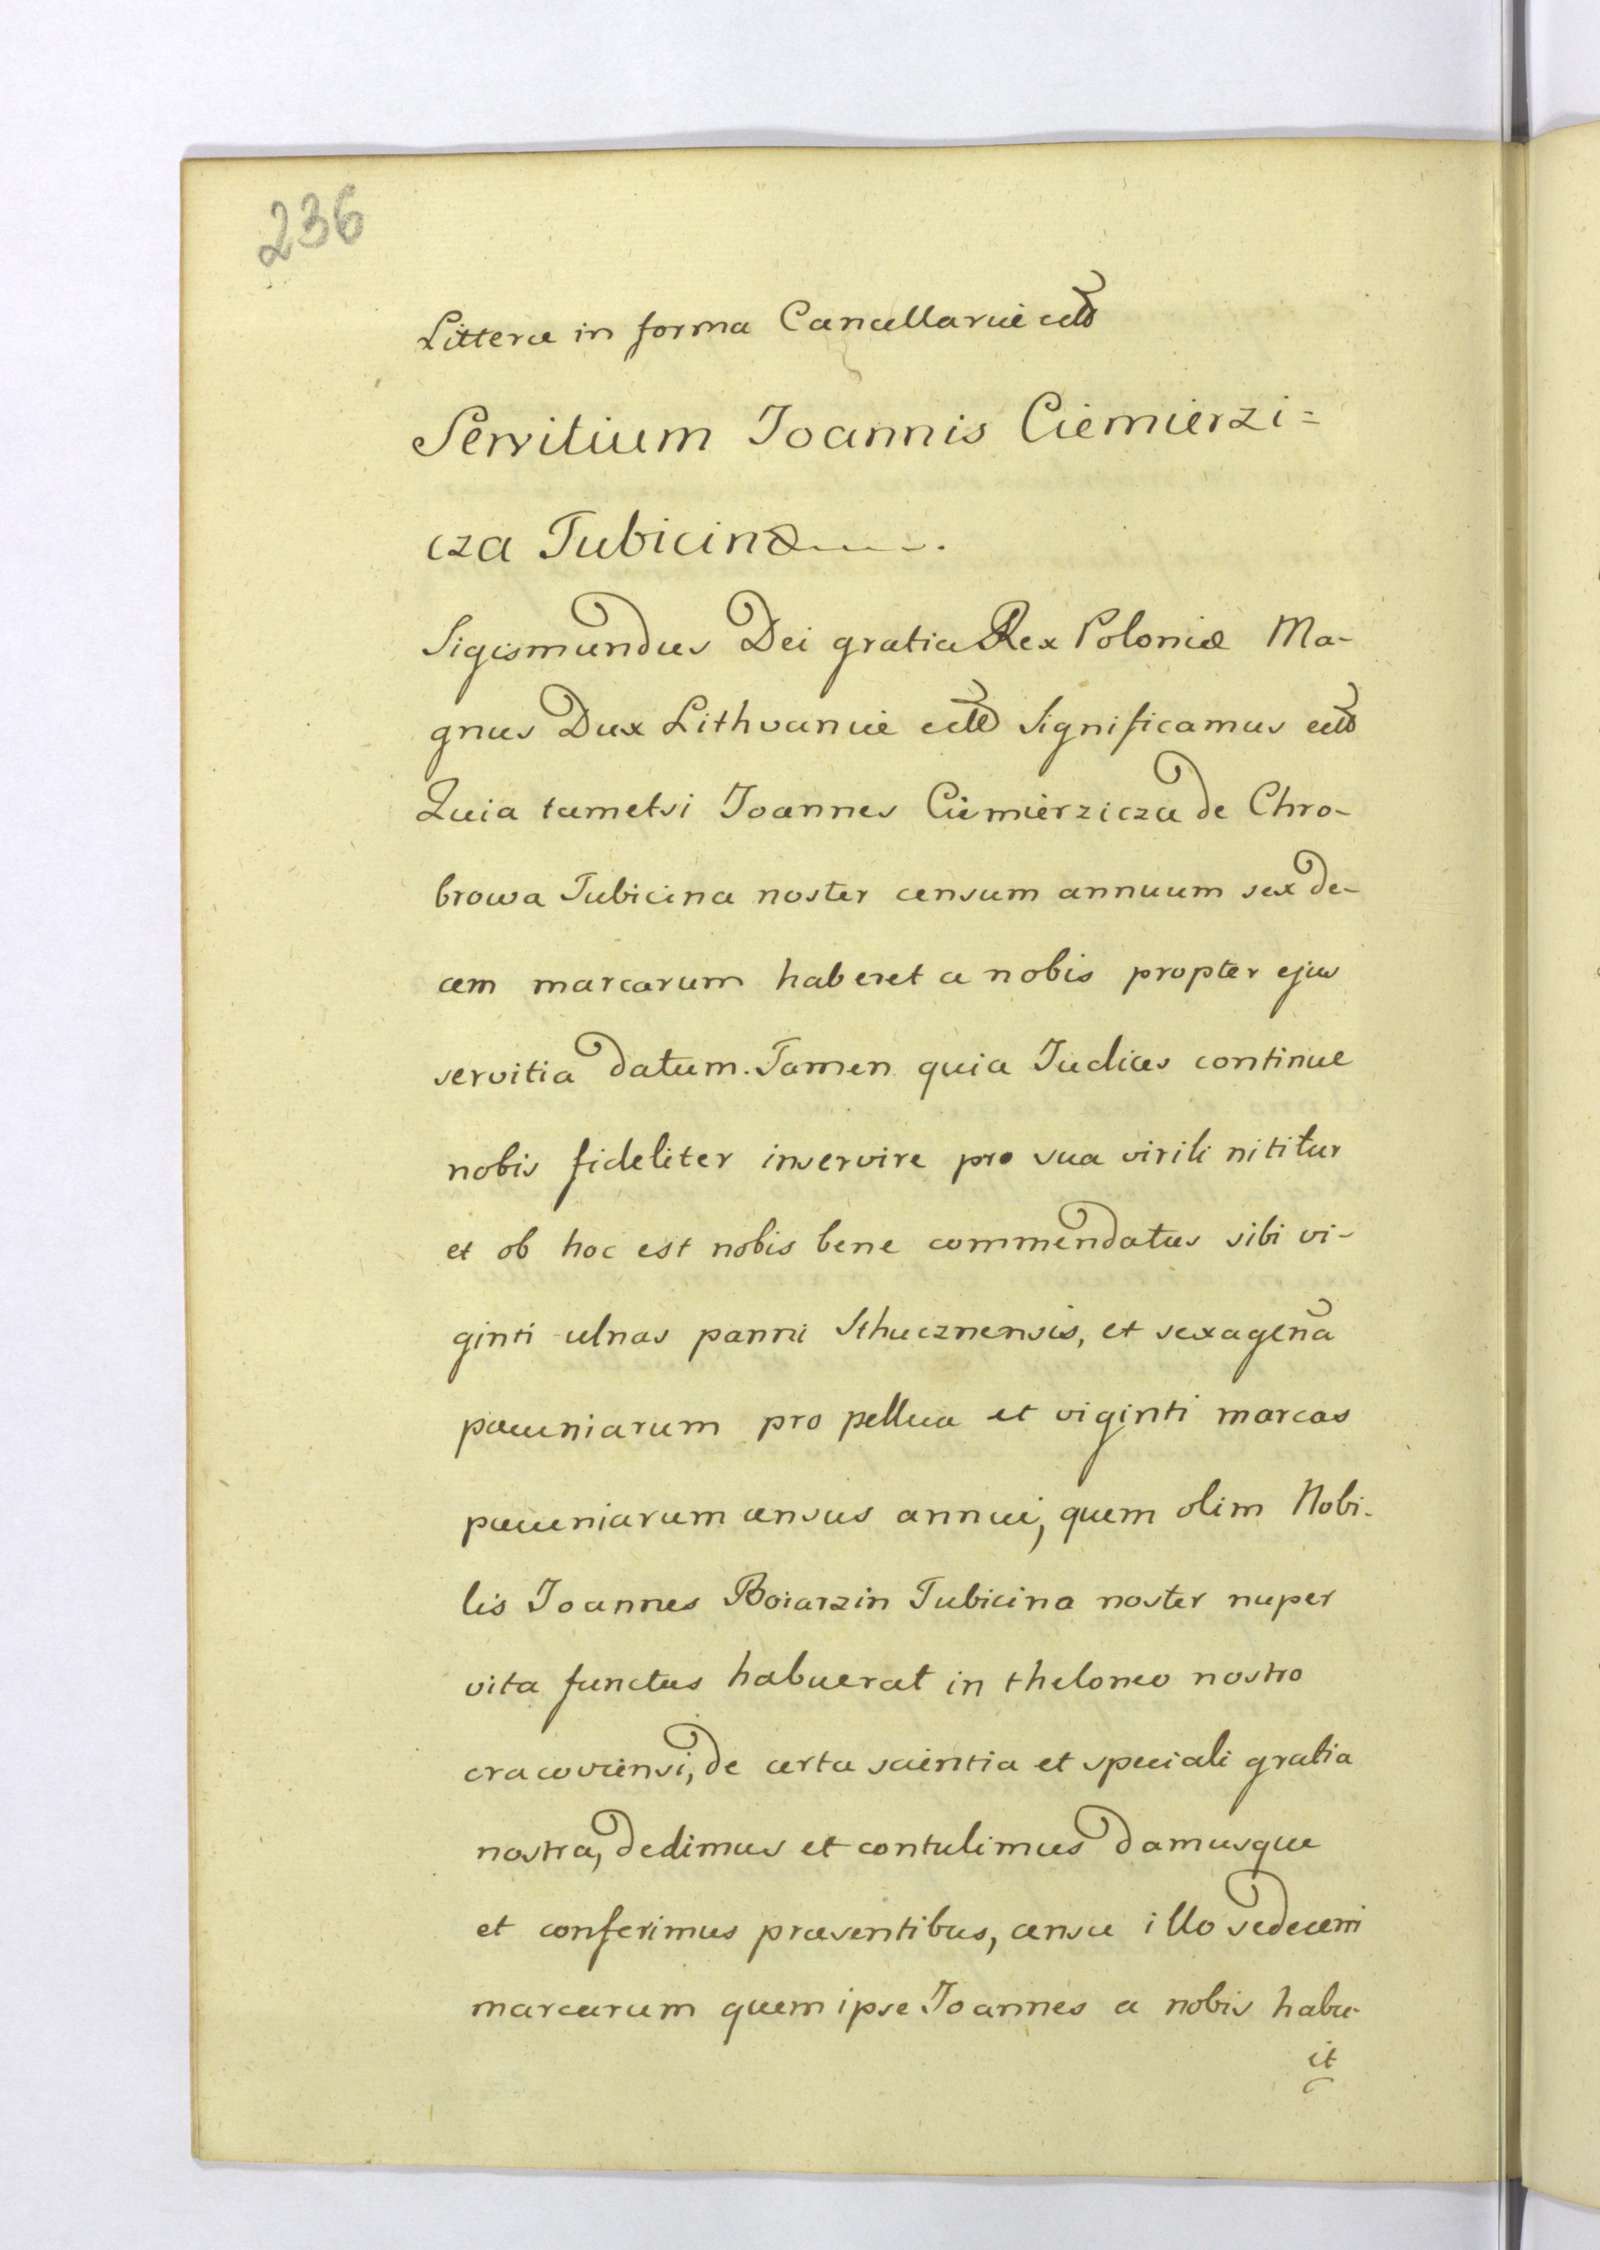 236
Litteræ in forma Cancellariæ etc
Servitium Joannis Ciemierzi=
cza Tubicinæ
Sigismundus Dei gratia Rex Poloniæ Ma-
gnus Dux Lithvaniæ etc Significamus etc
Quia tametsi Joannes Ciemierzicza de Chro-
browa Tubicina noster censum annuum sex de-
cem marcarum haberet a nobis propter ejus
servitia datum. Tamen quia Iudices continue
nobis fideliter inservire pro sua virili nititur
et ob hoc est nobis bene commendatus sibi vi-
ginti ulnas panni Sthucznensis, et sexagena
pecuniarum pro pellica et viginti marcas
pecuniarum census annui, quem olim Nobi-
lis Joannes Boiarzin Tubicina noster nuper
vita functus habuerat in theloneo nostro
cracoviensi, de certa scientia et speciali gratia
nostra, dedimus et contulimus damusque
et conferimus præsentibus, censu illo sedecem
marcarum quem ipse Joannes a nobis habu-
it